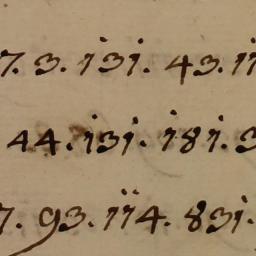 7. 3. 131. 43. 11
44. 131. 181. 3
7. 93. 114. 831.